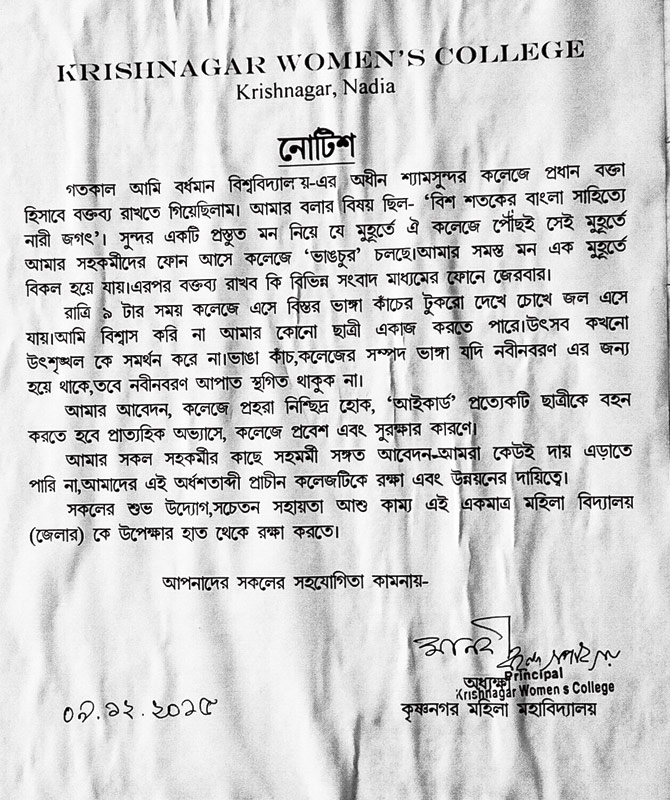 KRISHNAGAR WOMEN'S COLLEGE
Krishnagar, Nadia
নোটিশ
গতকাল আমি বর্ধমান বিশ্ববিদ্যালয়-এর অধীন শ্যামসুন্দর কলেজে প্রধান বক্তা
হিসাবে বক্তব্য রাখতে গিয়েছিলাম। আমার বলার বিষয় ছিল- 'বিশ শতকের বাংলা সাহিত্যে
নারী জগৎ'। সুন্দর একটি প্রস্তুত মন নিয়ে যে মুহূর্তে ঐ কলেজে পৌঁছই সেই মুহূর্তে
আমার সহকর্মীদের ফোন আসে কলেজে 'ভাঙচুর' চলছে।আমার সমস্ত মন এক মুহূর্তে
বিকল হয়ে যায়।এরপর বক্তব্য রাখব কি বিভিন্ন সংবাদ মাধ্যমের ফোনে জেরবার।
রাত্রি ৯ টার সময় কলেজে এসে বিস্তর ভাঙ্গা কাঁচের টুকরো দেখে চোখে জল এসে
যায়।আমি বিশ্বাস করি না আমার কোনো ছাত্রী একাজ করতে পারে।উৎসব কখনো
উৎশৃঙ্খল কে সমর্থন করে না।ভাঙা কাঁচ,কলেজের সম্পদ ভাঙ্গা যদি নবীনবরণ এর জন্য
হয়ে থাকে,তবে নবীনবরণ আপাত স্থগিত থাকুক না।
আমার আবেদন, কলেজে প্রহরা নিশ্ছিদ্র হোক, 'আইকার্ড' প্রত্যেকটি ছাত্রীকে বহন
করতে হবে প্রাত্যহিক অভ্যাসে, কলেজে প্রবেশ এবং সুরক্ষার কারণে।
আমার সকল সহকর্মীর কাছে সহমর্মী সঙ্গত আবেদন-আমরা কেউই দায় এড়াতে
পারি না,আমাদের এই অর্ধশতাব্দী প্রাচীন কলেজটিকে রক্ষা এবং উন্নয়নের দায়িত্বে।
সকলের শুভ উদ্যোগ,সচেতন সহায়তা আশু কাম্য এই একমাত্র মহিলা বিদ্যালয়
(জেলার) কে উপেক্ষার হাত থেকে রক্ষা করতে।
আপনাদের সকলের সহযোগিতা কামনায়-
অধ্যক্ষা Principal
Krishnagar Women's College
কৃষ্ণনগর মহিলা মহাবিদ্যালয়